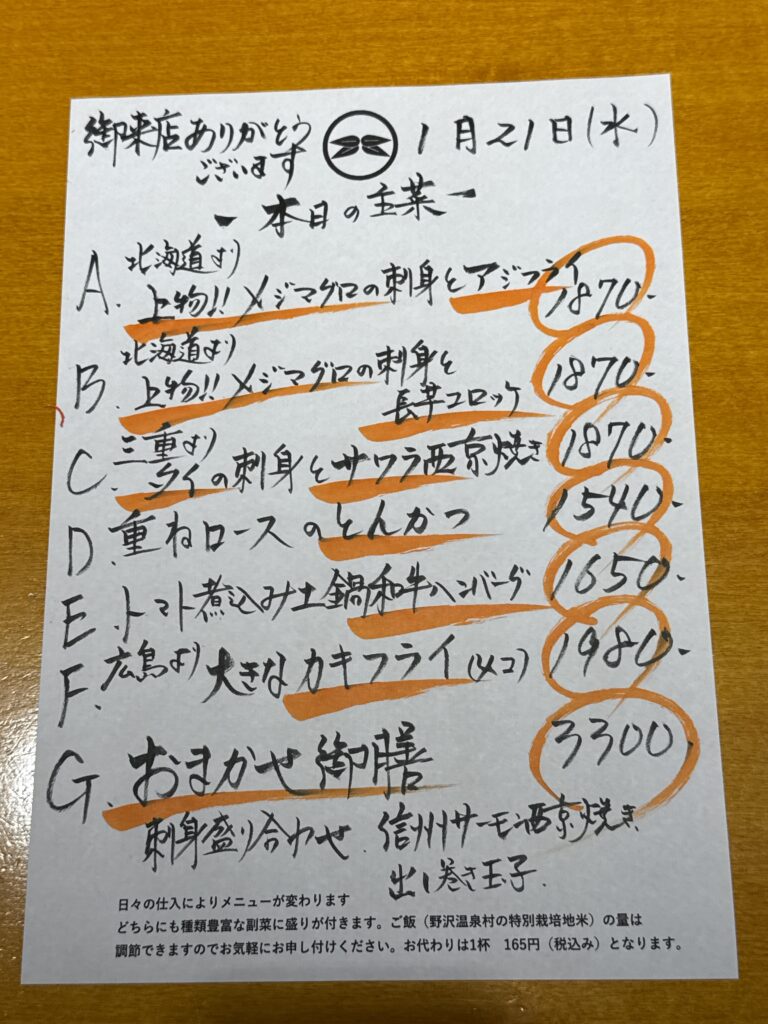 御来店ありがとう
ございます
1月21日(水)
ー本日の主菜ー
A. 北海道より
上物!!メジマグロの刺身とアジフライ
1870-
B. 北海道より
上物!!メジマグロの刺身と
長芋コロッケ
1870-
C. 三重より
タイの刺身とサワラ西京焼き
1870-
D. 重ねロースのとんかつ
1540-
E. トマト煮込み土鍋和牛ハンバーグ
1650-
F. 広島より 大きなカキフライ(4コ)
1980-
G. おまかせ御膳
3300.
刺身盛り合わせ. 信州サーモン西京焼き.
出し巻き玉子.
日々の仕入によりメニューが変わります
どちらにも種類豊富な副菜に盛りが付きます。ご飯(野沢温泉村の特別栽培地米)の量は
調節できますのでお気軽にお申し付けください。お代わりは1杯 165円(税込み)となります。